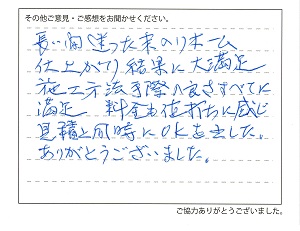 その他ご意見・ご感想をお聞かせください。
長い間迷った末のリホーム
仕上がり結果に大満足
施工方法手際の良さすべてに
満足 料金も値打ちに感じ
見積と同時にOKを出した。
ありがとうございました。
ご協力ありがとうございました。